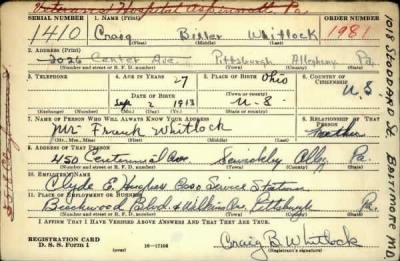 Veterans Hospital Aspinwall Pa.
SERIAL NUMBER 1. NAME (Print) ORDER NUMBER
1410 Craig Bixler Whitlock 1981
(First) (Middle) (Last)
2. ADDRESS (Print)
2026 Center Ave. Pittsburgh Allegheny Pa.
(Number and street or R. F. D. number) (Town) (County) (State)
3. TELEPHONE 4. AGE IN YEARS 5. PLACE OF BIRTH 6. COUNTRY OF CITIZENSHIP
27 Ohio
(Town or county)
DATE OF BIRTH
Sept 2 1913 U-S- U.S
(Exchange) (Number) (Mo.) (Day) (Yr.) (State or country)
7. NAME OF PERSON WHO WILL ALWAYS KNOW YOUR ADDRESS 8. RELATIONSHIP OF THAT PERSON
Mr Frank Whitlock
(Mr., Mrs., Miss) (First) (Middle) (Last)
9. ADDRESS OF THAT PERSON
450 Centennial Ave Sewickley Alleg. Pa.
(Number and street or R. F. D. number) (Town) (County) (State)
10. EMPLOYER'S NAME
Clyde E. Hughes Esso Service Station
11. PLACE OF EMPLOYMENT OR BUSINESS
Beechwood Blvd. & Wilkins Ave. Pittsburgh Pa.
(Number and street or R. F. D. number) (Town) (County) (State)
I AFFIRM THAT I HAVE VERIFIED ABOVE ANSWERS AND THAT THEY ARE TRUE.
REGISTRATION CARD
D. S. S. Form 1 16-17105
Craig B. Whitlock
(Registrant's signature)
1018 STODDARD St. BALTIMORE MD.